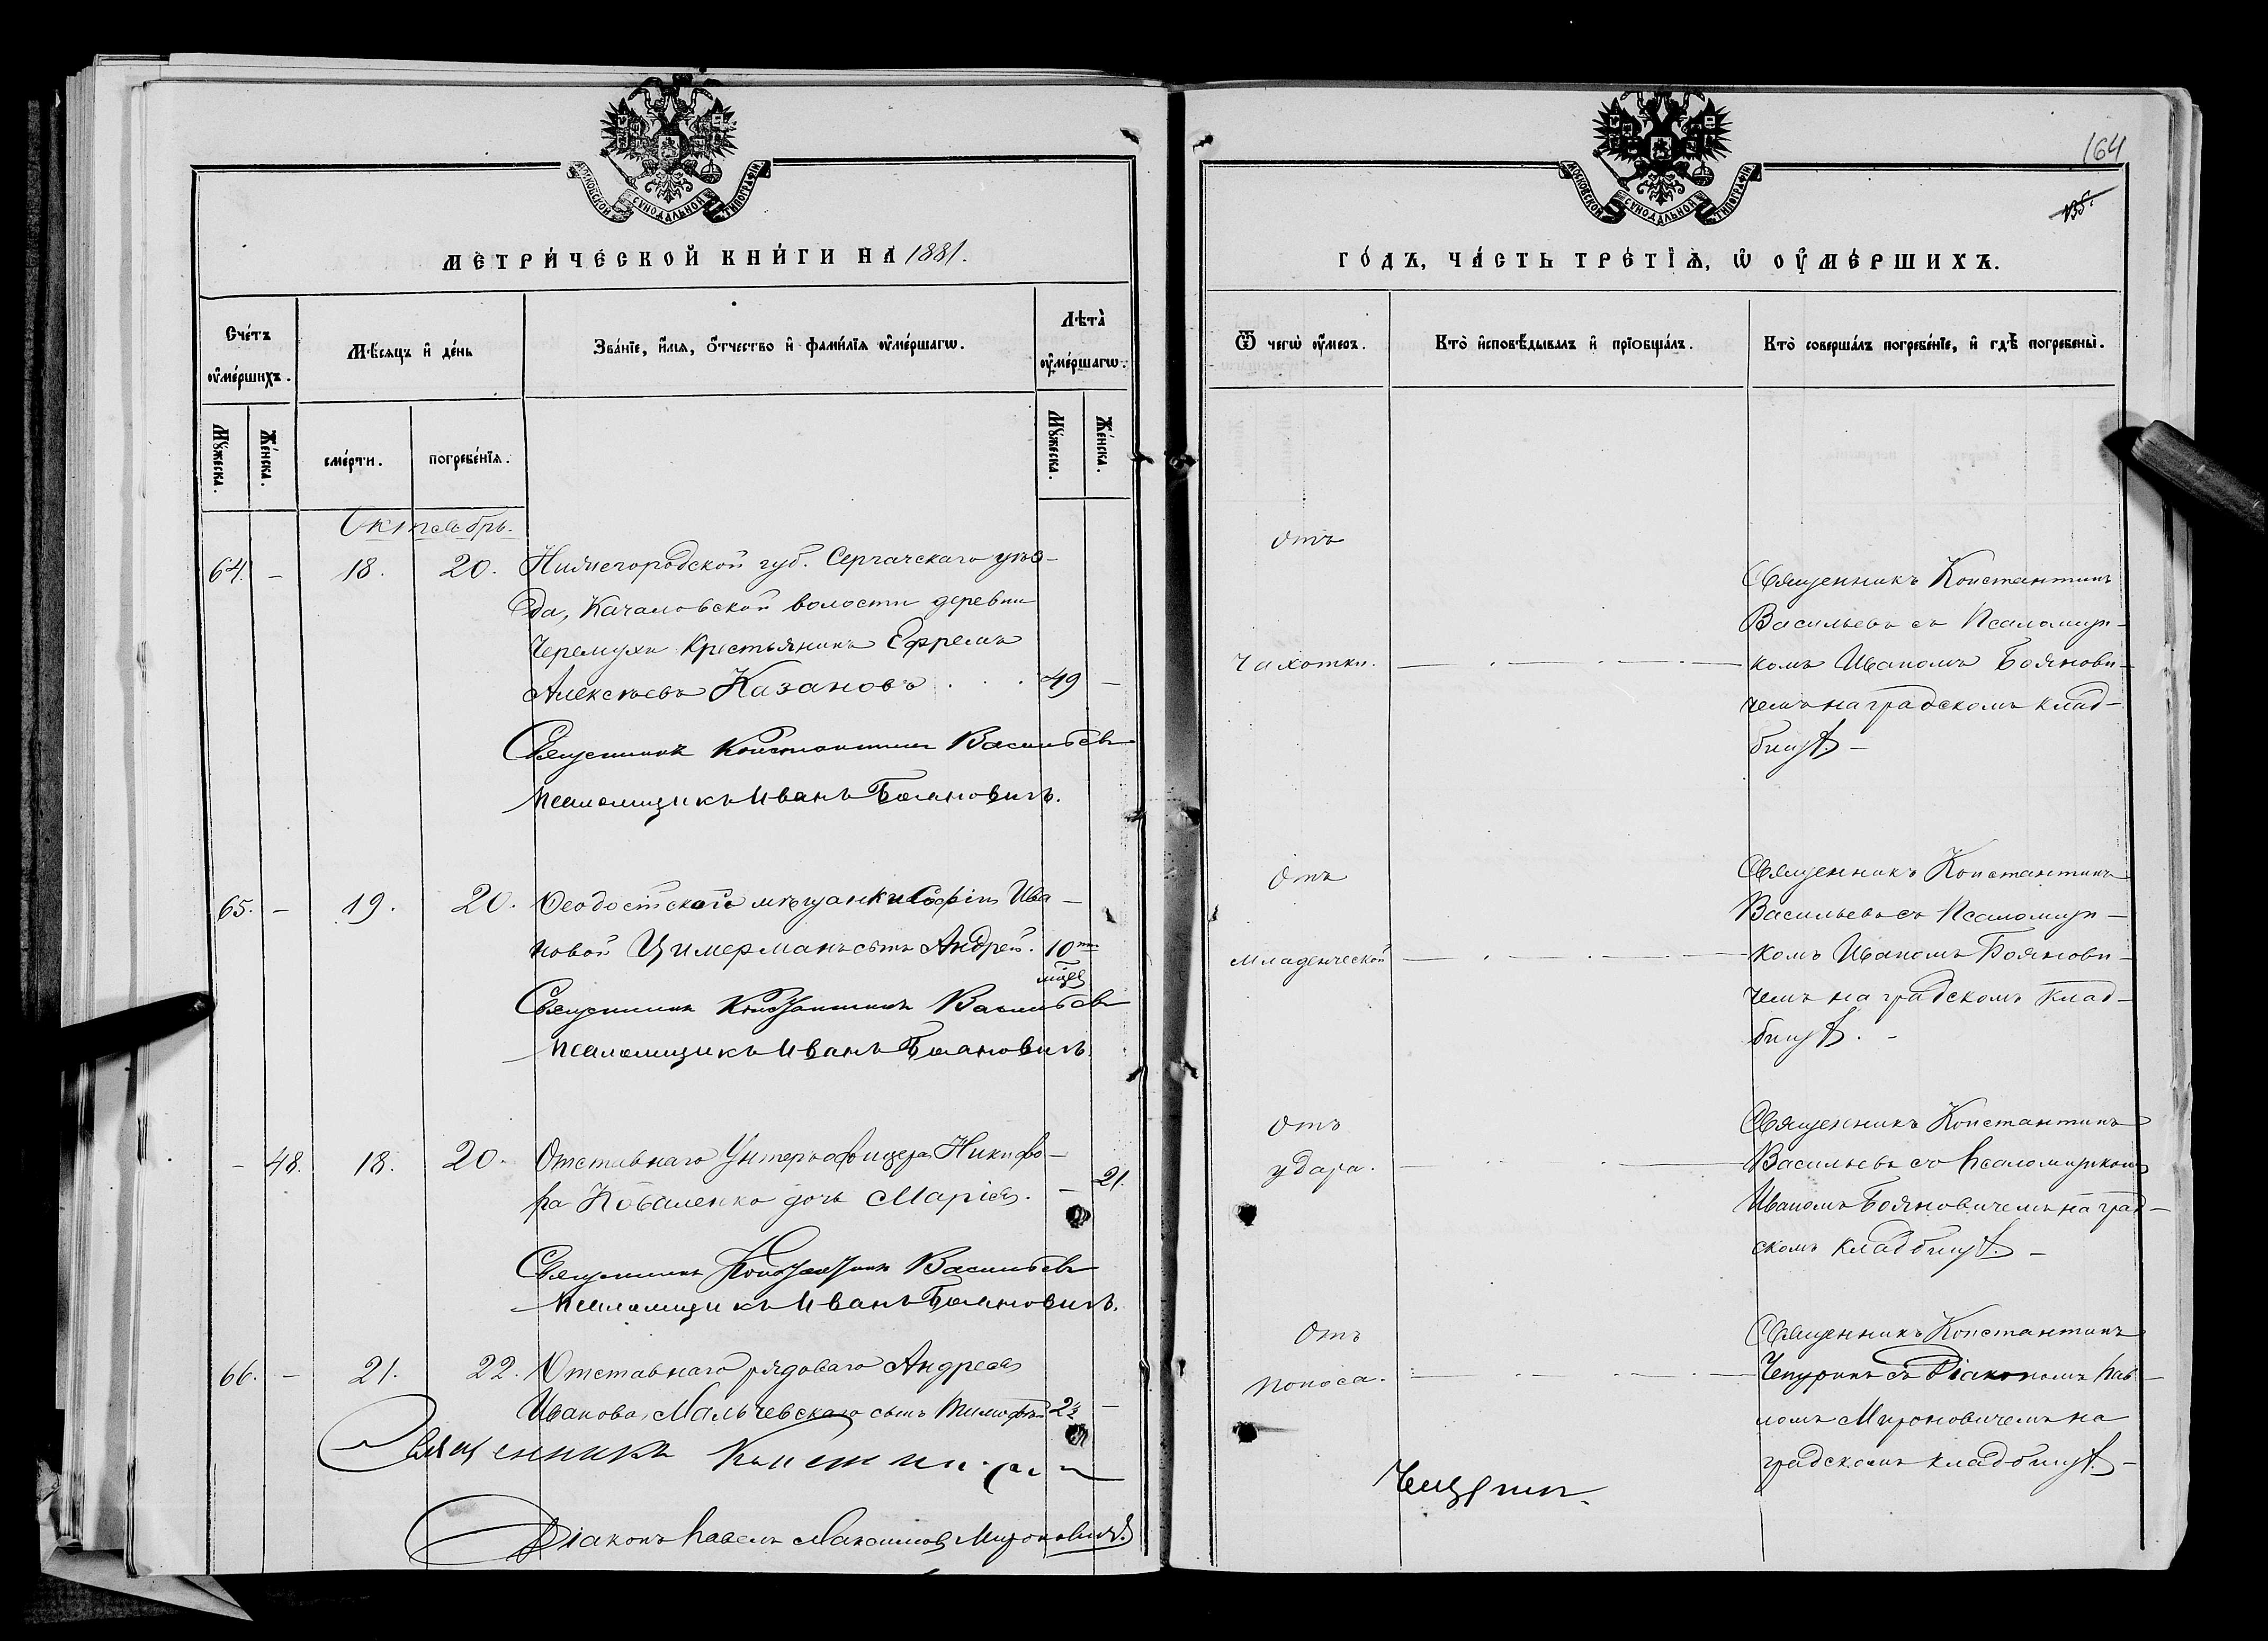 МОСКОВСКОЙ СѴНОДАЛЬНОЙ ТИПОГРАФІИ
МЕТРИ́ЧЕСКОЙ КНИ́ГИ НА 1881.
Сче́тъ ᲂу҆ме́ршихъ.
Мѣ́сѧцъ и҆ де́нь
Зва́нїе, и҆́мѧ, ѻ҆́тчество и҆ фами́лїѧ ᲂу҆ме́ршагѡ.
Лѣта̀ ᲂу҆ме́ршагѡ.
Мꙋ́жеска.
Же́нска.
сме́рти.
погребе́нїѧ.
Мꙋ́жеска.
Же́нска.
Октябрь.
64. – 18. 20. Нижегородской губ. Сергачскаго уѣз-
да, Качаловской волости деревни
Черемухи Крестьянинъ Ефремъ
Алексѣевъ Казановъ . . . 49 –
Священникъ Константинъ Васильевъ
Псаломщикъ Иванъ Бояновичъ.
65. – 19. 20. Ѳеодосійской мѣщанки Софіи Ива-
новой Цимерманъ сынъ Андрей. 10ти
мѣс
Священникъ Константинъ Васильевъ
Псаломщикъ Иванъ Бояновичъ.
– 48. 18. 20. Отставнаго Унтеръ офицера Никифо-
ра Коваленко дочь Марія. – 21.
Священникъ Константинъ Васильевъ
Псаломщикъ Иванъ Бояновичъ.
66. – 21. 22. Отставнаго рядоваго Андрея
Иванова Мальчевскаго сынъ Тимофей 2½ –
Священникъ Константинъ
Діаконъ Павелъ Максимовъ Мироновичъ.
164
135.
МОСКОВСКОЙ СѴНОДАЛЬНОЙ ТИПОГРАФІИ
ГО́ДЪ, ЧА́СТЬ ТРЕ́ТЇѦ, Ѡ҆ ОУ҆МЕ́РШИХЪ.
Ѿ чегѡ̀ ᲂу҆́меръ.
Кто̀ и҆сповѣ́дывалъ и҆ прїобща́лъ.
Кто̀ соверша́лъ погребе́нїе, и҆ гдѣ̀ погребены̀.
Отъ
чахотки.
Священникъ Константинъ
Васильевъ съ Псаломщи-
комъ Иваномъ Боянови-
чемъ на градскомъ клад-
бищѣ. –
Отъ
младенческой
Священникъ Константинъ
Васильевъ съ Псаломщи-
комъ Иваномъ Боянови-
чемъ на градскомъ клад-
бищѣ. –
Отъ
удара.
Священникъ Константинъ
Васильевъ съ Псаломщикомъ
Иваномъ Бояновичемъ на град-
скомъ кладбищѣ. –
Отъ
поноса.
Священникъ Константинъ
Чепуринъ съ Діакономъ Пав-
ломъ Мироновичемъ на
градскомъ кладбищѣ. –
Чепуринъ.